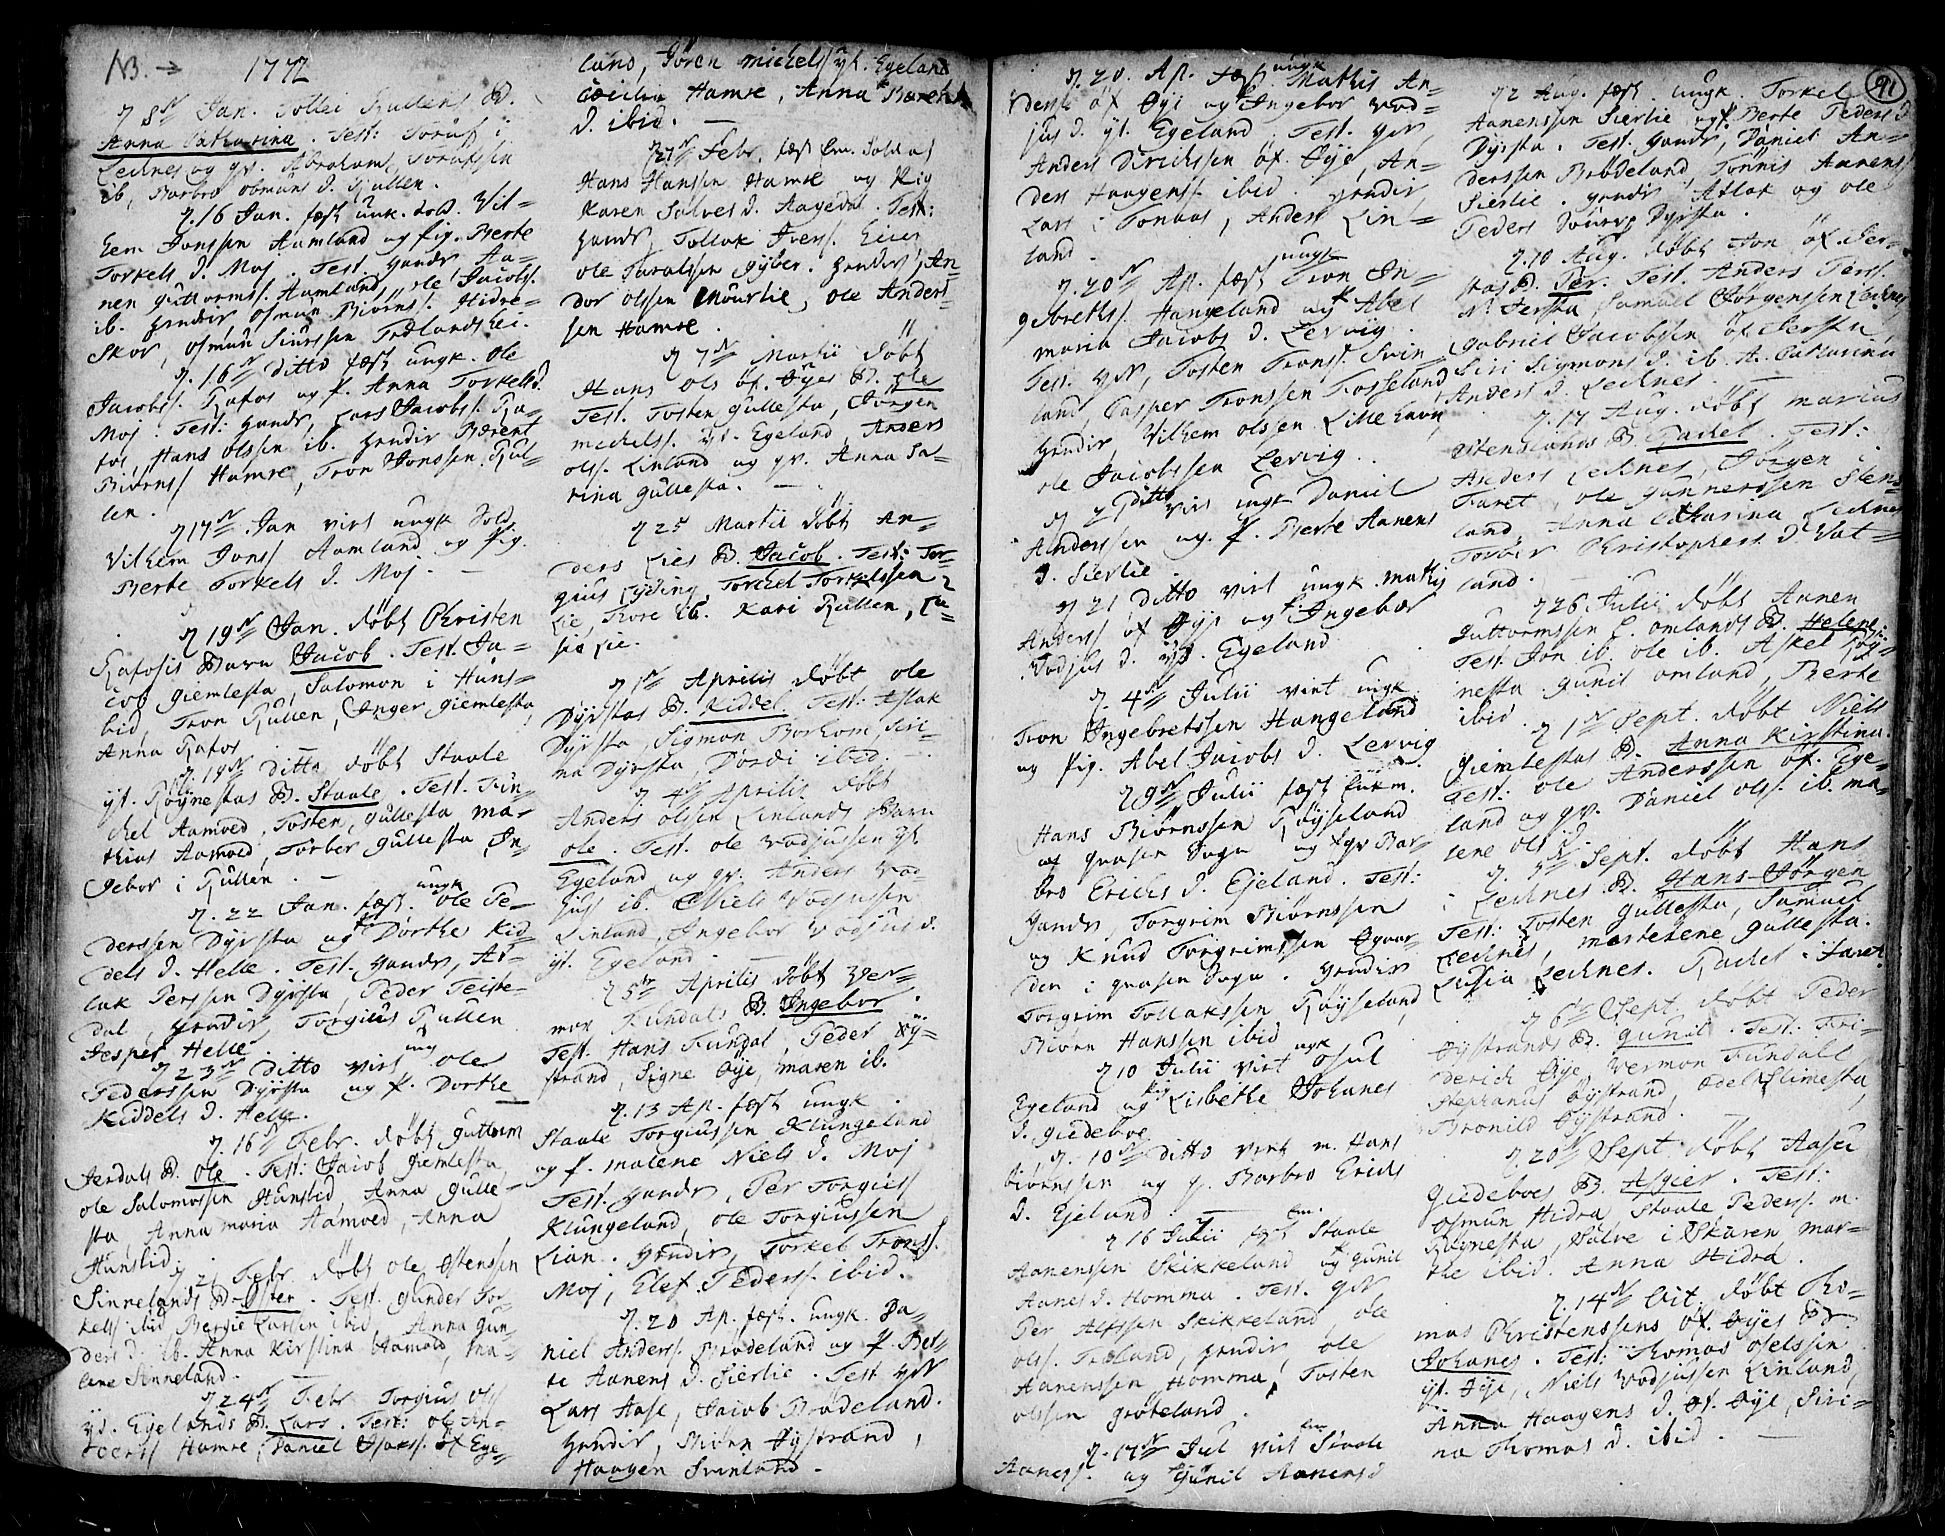 NB. 1772
d. 8de Jan. Tollei Rullens B.
Anna Catharina. Test: Toruf i
Lednes og qv. Abraham Torufsen
ib, Barbro Osmuns d. Rullen.
d. 16 Jan. fæst unk. sold. Vil-
hem Jonssen Aamland og pig. Berte
Torkels d. Moj. Test. hands Aa-
nen Guttormss. Aamland, Ole Jacobs.
ib. hendis Osmun Biørnss. Hidre-
skor, Osmun Siurssen Fedlandshei.
d. 16de ditto fæst ungk. Ole
Jacobs. Rafos og p. Anna Torkels d.
Moj. Test: hands, Lars Jacobs. Ra-
fos, Hans Olssen ib. hendis Berent
Biørns. Hamre, Tron Jonssen Rul-
len.
d 17de Jan virt ungk sold
Vilhem Jons. Aamland og pig.
Berte Torkels d. Moj.
d 19de Jan. døbt Christen
Rafosis Barn Jacob. Test. Ja-
cob Giemlesta, Salomon i Huns-
bid, Tron Rullen, Inger Giemlesta,
Anna Rafos
d. 19de ditto døbt Staale
yt. Røynestas B. Staale. Test. Tin-
chel Aamoed, Tosten Gullesta Ma-
thias Aamoed, Torber Gullesta, In-
gebor i Rullen.
d. 22 Jan. fæst. ungk Ole Pe-
derssen Dyrsta og p Dorthe Kid-
dels d. Helle. Test. hands, At-
lak Perssen Dyrsta, Peder Teiste-
dal, hendis Torgius Rullen
Jesper Helle.
d 23de ditto virt ung Ole
Pederssen Dyrsta og p. Dorthe
Kiddels d. Helle.
d. 16de Febr. døbt Guttorm
Jerdals B. Ole. Test: Jacob Giemlesta
Ole Salomossen Hunsbid, Anna Gulle-
sta, Anna Maria Aamoed, Anna
Hunsbid.
d 21 Febr. døbt Ole Ostenssen
Sinnelands B. Osten. Test. Gunder Tor-
kels. ibid Bergie Larssen ibid. Anna Gun-
ders d. ib. Anna Kirstina Aamoed, Ma-
lene Sinneland.
d 24de Febr Torgius Ols
yt. Egelands B. Lars. Test: Ole An-
ders. Hamre, Daniel Isaks. øf Ege-
land, Jøren Michelss yt. Egeland
Cecilia Hamre, Anna Barents
d. ibid.
d 27de Febr. fæst Em. Soldat
Hans Hanssen Hamre og Pig
Karen Salves d. Aagedal. Test:
hands Tollak Ivers. Eiesi
Ole Taralssen Gyber. hendis An-
dor Olssen Mourlie, Ole Anders-
sen Hamre.
d 7de Martii døbt
Hans Ols øf. Øyes B. Ole
Test. Tosten Gullesta, Jørgen
Michelss. yt. Egeland, Anders
Olss. Linland og qv. Anna Ca-
rina Gullesta.
d 25 Martii døbt An-
ders Lies B. Jacob. Test: Tor-
gius Lyding, Torchel Torkelssen
Lie, Tore ib. Kari Rullen, Lu-
sie Lie.
d 1de Aprilis døbt Ole
Dyrstas B. Kiddel. Test: Aslak
Dyrsta, Sigmon Borhom, Siri-
na Dyrsta, Dordi ibid.
d 4de Aprilis døbt
Anders Olsen Linlands Barn
Ole. Test. Ole Vodjussen yt
Egeland og qv. Anders Vod-
jus. ib. Niels Vodjussen
Linland, Ingebor Vodjus d.
yt. Egeland.
d 5de Aprilis døbt Ver-
mon Fundals B. Ingebor.
Test. Hans Fundal, Peder Øy-
strand, Signe Øye, Maren ib.
d. 13 Ap. fæst ungk.
Staale Torgiussen Klungeland
og p. Malene Niels d. Moj
Test. hands, Per Torgiuss
Klungeland, Ole Torgiussen
Lian. hendis, Torkel Tronss.
Moj, Elef Pederss. ibid.
d. 20 Ap. fæst. ungk. Da-
niel Anderss. Brødeland og p. Ber-
te Aanens d. Sierlie. Test. hds
Lars Aase, Jacob Brødeland.
hendis, Biørn Øystrand,
Haagen Svinland.
d. 20. Ap. fæst ungk Mathis An-
derss øf Øye og Ingebor Vod-
jus d. yt. Egeland. Test. hds
Anders Dirichssen øf. Øye, An-
ders Haagens. ibid. hendis
Lars i Tonaas, Anders Lin-
land.
d. 20de Ap. fæst ungk Tron In-
gebreths. Hangeland og p Abel
Maria Jacobs d. Lervig.
Test. hds, Tosten Tronss. Svin
land, Casper Tronssen Fosseland
hendis Vilhem Olssen Lillehavn
Ole Jacobssen Lervig.
d 21 ditto virt ungk Daniel
Anderssen og. p. Berte Aanens
d. Sierlie.
d 21 ditto virt ungk. Mathis
Anderss øf Øye og p Ingebor
Vodjus d. yt. Egeland.
d. 4de Julii virt ungk
Tron Ingebretssen Hangeland
og Pig. Abel Jacobs d. Lervig
d 9de Julii fæst Enkm.
Hans Biørnssen Røyseland
af Qvasen Sogn og Eqv Bar-
bro Erichs d. Egeland. Test:
hands, Torgrim Biørnssen
og Knud Torgrimssen Øgaar-
den i Qvasen Sogn. hendis
Torgrim Tollakssen Røyseland
Biørn Hanssen ibid
d 10 Julii virt ungk Osul
Egeland og pig Lisbethe Johanes
d. Giedeboe
d. 10de ditto virt m. Hans
Biørnssen og p. Barbro Erichs
d. Egeland.
d 16 Julii fæst Em. Staale
Aanenssen Skikkeland og p Gunil
Aanes d. Homma. Test. hds
Per Alfssen Skikkeland, Ole
Olss. Træland, hendis, Ole
Aanenssen Homma, Tosten
Olssen Grøteland.
d. 17de Jul virt Em Staale
Aanens. og Gunil Aanens d
91
d 2 Aug. fæst. ungk. Torkel
Aanenssen Sierlie og p. Berte Peders d
Dyrsta. Test. hands, Daniel An-
derssen Brødeland, Tønnis Aanens
Sierlie. hendis Atlak og Ole
Peders Sønner Dyrsta.
d. 10 Aug. døbt Jon øf. Jer-
stas B. Per. Test. Anders Perss.
N. Jersta, Samuel Jørgenssen Lednes
Gabriel Jacobssen øf Jersta,
Siri Sigmons d. ib. A. Catharina
Anders d. Lednes.
d. 17 Aug. døbt Marius
Stenslands B Rachel. Test:
Anders Lednes, Jørgen i
Faret, Ole Gunnerssen Stens-
land, Anna Catharina Lednes
Torber Christophers d Vat-
land.
d 26 Julii døbt Aanen
Guttormssen L. Omlands B. Helene.
Test. Jon ib. Ole ib. Askel Røy-
nesta Gunil Omland, Berte
ibid.
d 1de Sept. døbt Niels
Giemlestas B. Anna Kirstina.
Test: Ole Anderssen øf. Ege-
land og qv. Daniel Olss. ib. Ma-
lene Ols d.
d. 5de Sept. døbt Hans
i Lednes B. Hans Jørgen
Test: Tosten Gullesta, Samuel
Lednes, Marthe Lene Gullesta.
Lusia Lednes. Rachel i Faret.
d 6de Sept. døbt Peder
Øystrands B. Gunil. Test: Fri-
derich Øye, Vermon Fundall
Stephanus Øystrand, Adel Slimesta,
Bronild Øystrand.
d. 20de Sept døbt Aasel
Giedeboes B. Asgier. Test:
Osmun Hidra Staale Peders. m.
Røynesta, Salve i Skaren Mar-
the ibid. Anna Hidra.
d. 14de Oct. døbt Tho-
mas Christenssens øf. Øyes B
Johanes. Test: Thomas Oselssen
yt. Øye, Niels Vodjussen Linland,
Anna Haagens d. øf. Øye, Siri-
na Thomas d. ibid.